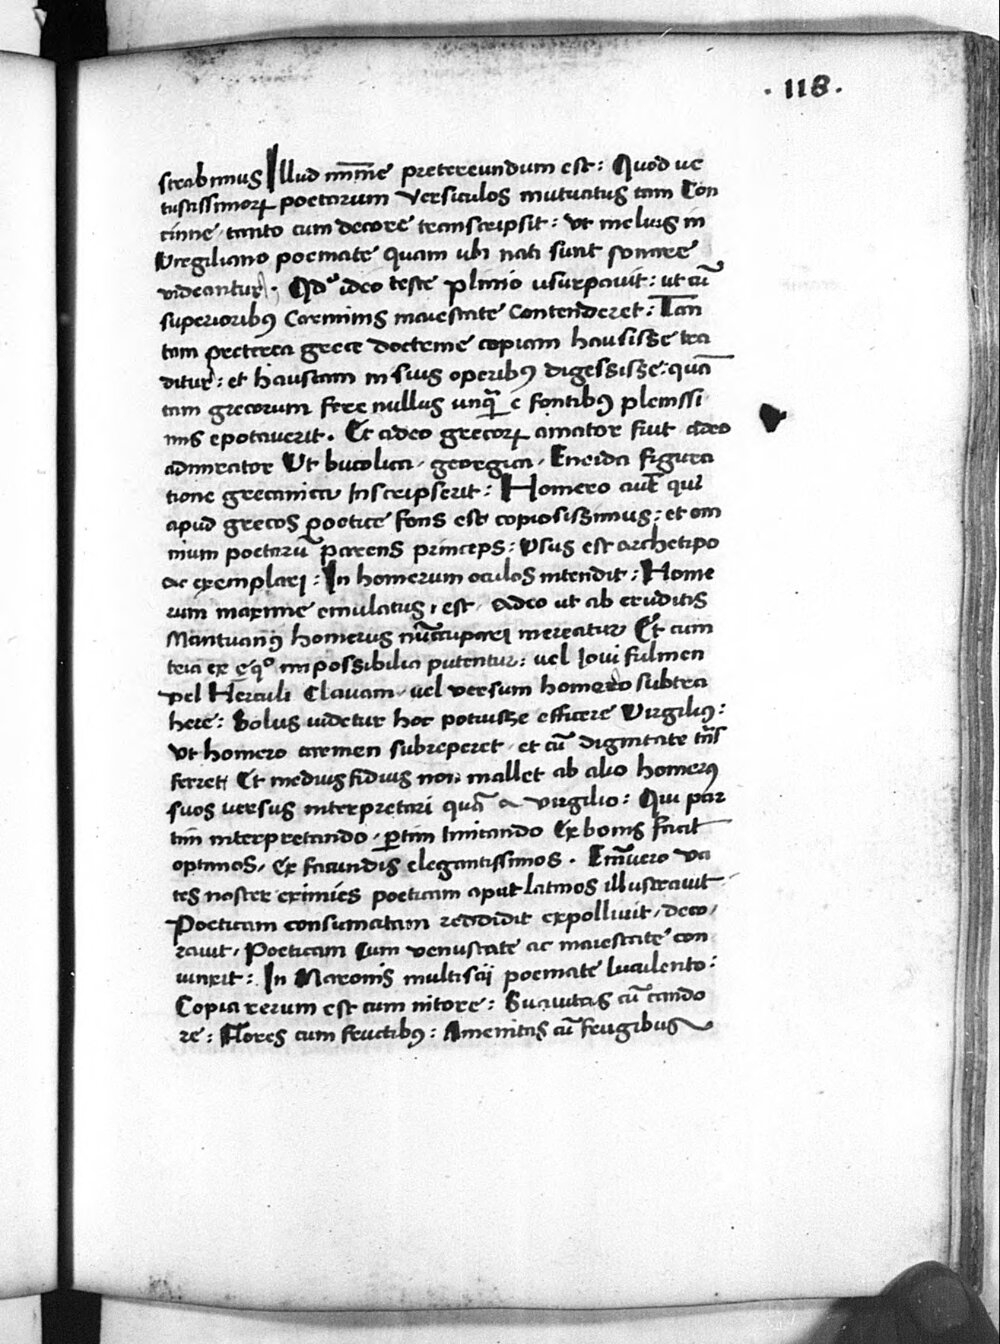 · 118 ·
strabimus Illud mīme pretereundum est : Quod ue
tustissimoꝝ poetarum versiculos mutuatus tam Con
cinne tanto cum decore transcripsit : ut melius in
Virgiliano poemate quam ubi nati sunt sonare
videantur . Qdº ideo teste plinio usurpauit : ut cū
superioribꝯ Carminis maiestate Contenderet : Tan
tam preterea grece doctrine copiam hausisse tra
ditur : et haustam in suis operibꝯ digessisse : quā
tam grecorum fere nullus unqȝ e fontibꝯ plenissi
mis epotauerit . Et adeo grecoꝝ amator fuit adeo
admirator Ut bucolica , georgica , Eneida figura
tione grecanica Inscripserit : Homero aut̄ qui
apud grecos poetice fons est copiosissimus : et om
nium poetarū parens princeps : Usus est archetipo
ac exemplari : In homerum oculos intendit : Home
rum maxime emulatus , est , adeo ut ab eruditis
Mantuanꝯ homerus nūcupari mereatur Et cum
tria ex eqº impossibilia putentur : uel Ioui fulmen
vel Herculi Clauam , uel versum homero subtra
here : Solus uidetur hoc potuisse efficere Virgiliꝯ :
Ut homero carmen subriperet , et cū dignitate tn̄s
ferret Et mediusfidius non mallet ab alio homerꝯ
suos uersus interpretari quā a virgilio : Qui par
tim interpretando , ꝑtim Imitando Ex bonis facit
optimos , Ex facundis elegantissimos . Enīuero va
tes noster eximies poeticam aput latinos illustrauit
Poeticam consumatam reddidit expolliuit , deco
rauit , Poeticam Cum venustate ac maiestate con
iunxit : In Maronis multiscij poemate luculento :
Copia rerum est cum nitore : Suauitas cū cando
re : Flores cum fructibꝯ : Amenitas cū frugibus